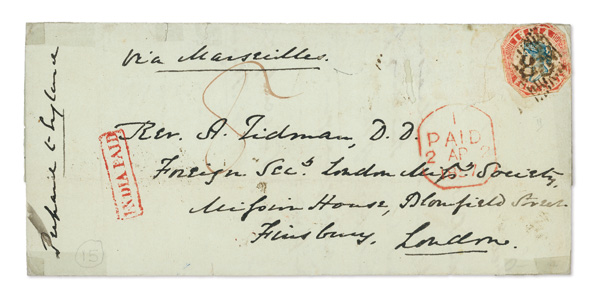 via Marseilles.
8
Rev. A. Tidman, D. D.
Foreign Secy. London Missy. Society,
Mission House, Blomfield Street
Finsbury, London.
INDIA PAID
1
PAID
2 AP
1857
15